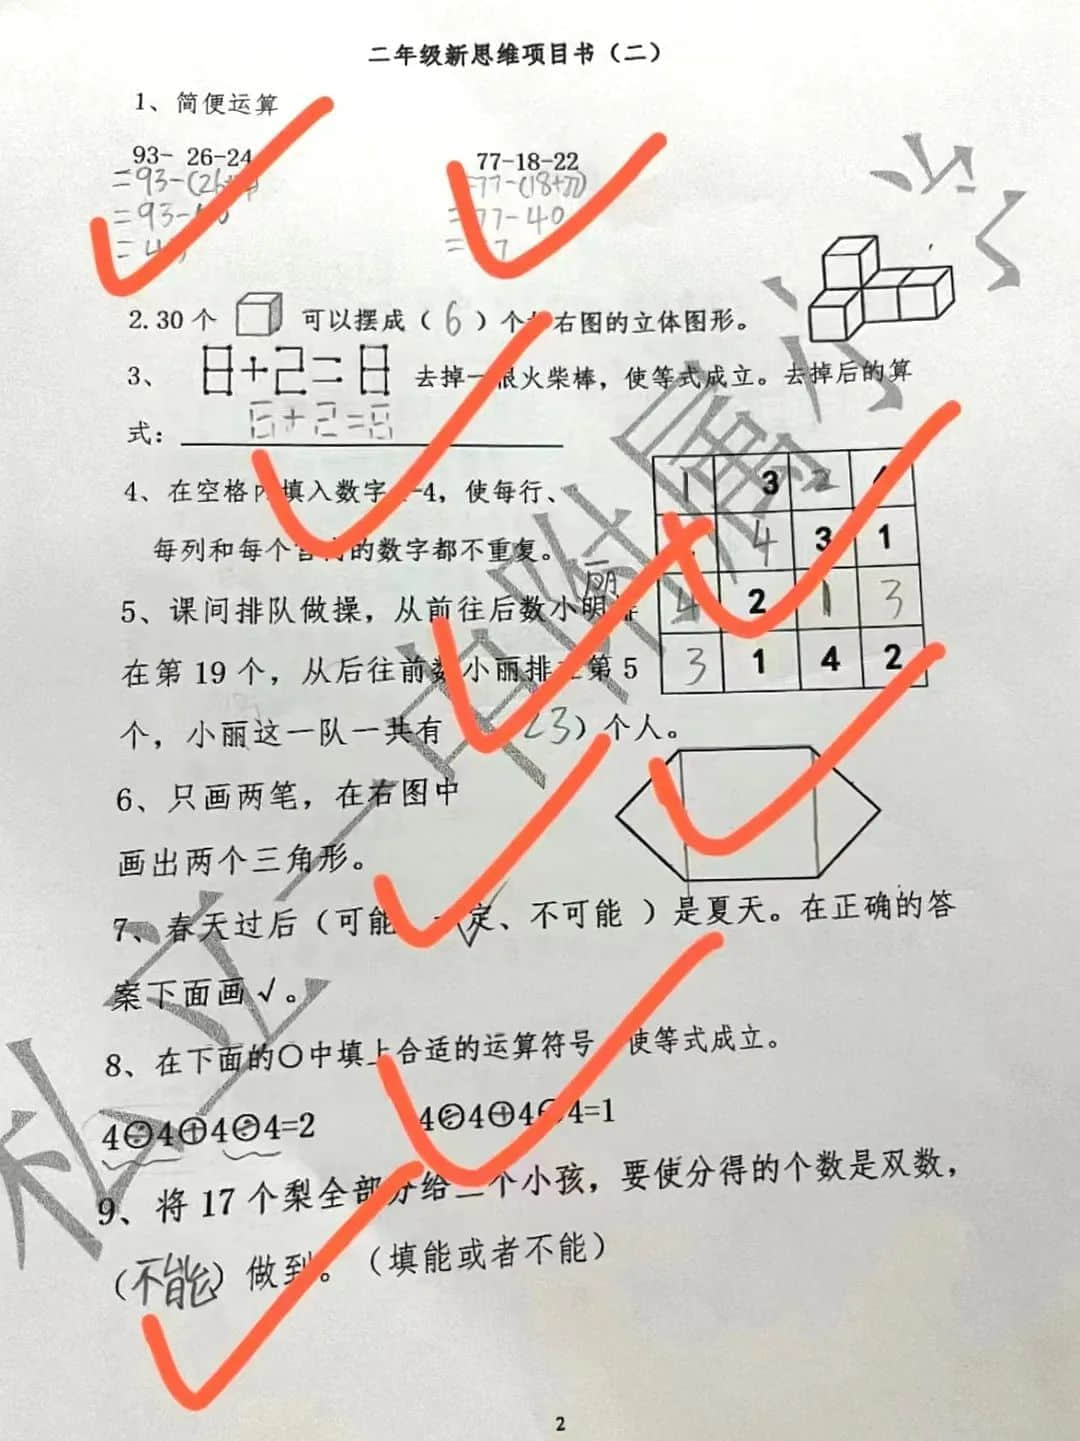 二年级新思维项目书（二）
1、简便运算
93- 26-24 77-18-22
=93-(26 =77-(18+22)
=93- =77-40
=4 =
2.30个 可以摆成（6）个 右图的立体图形。
3、 8+2=8 去掉一根火柴棒，使等式成立。去掉后的算
式： 6+2=8
4、在空格内填入数字 -4，使每行、
每列和每个 的数字都不重复。
1 3 2 4
4 3 1
4 2 1 3
3 1 4 2
丽
5、课间排队做操，从前往后数小明排
在第19个，从后往前数小丽排在第5
个，小丽这一队一共有 23）个人。
6、只画两笔，在右图中
画出两个三角形。
7、春天过后（可能、一定、不可能 ）是夏天。在正确的答
案下面画√。
8、在下面的○中填上合适的运算符号 使等式成立。
4÷4+4÷4=2 4÷4+4 4=1
9、将17个梨全部分给 个小孩，要使分得的个数是双数，
（不能）做到。（填能或者不能）
2
私立一中附属小学